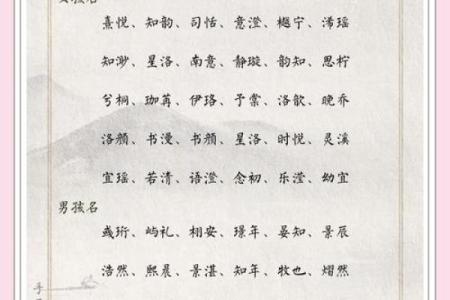 女孩名
熹悦、知韵、司恬、意澄、樾宁、浠瑶
知渺、星洛、南意、静璇、韵知、思柠
兮桐、珈苒、伊珞、予棠、洛歆、晚乔
洛颜、书漫、书颜、星洛、时悦、灵溪
宜瑶、若清、语滢、念初、乐滢、幼宜
男孩名
彧珩、屿礼、栩安、璟年、晏知、景辰
浩然、熙晨、景湛、知年、牧也、熠然